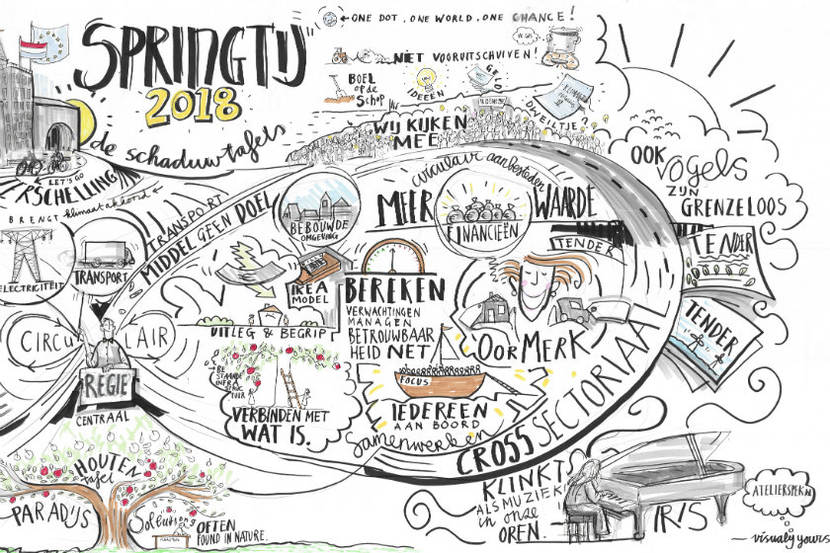 ONE DOT. ONE WORLD. ONE CHANCE!
SPRINGTIJ
2018
de schaduwtafels
NIET VOORUITSCHUIVEN!
BOEL
op de
SCHOP
IDEEËN
GELD
DEVIELTJE?
WIJ KIJKEN
MEE
LET'S GO
RSCHELLING
BRENGT klimaatakkoord
ELECTRICITEIT
TRANSPORT
TRANSPORT
MIDDEL GEEN DOEL
BEBOUWDE
OMGEVING
circulair aanbesteden
MEER WAARDE
FINANCIEËN
OOK
vogels
ZIJN
GRENZELOOS
TENDER
TENDER
TENDER
IKEA
MODEL
UITLEG & BEGRIP
BEREKEN
VERWACHTINGEN
MANAGEN
BETROUWBAAR
HEID NET
OORMERK
CIRCU LAIR
REGIE
CENTRAAL
BE
STAANDE
INFRA
STRUC
TUUR
VERBINDEN MET
WAT IS.
FOCUS
IEDEREEN
AAN BOORD
samenwerken
CROSS SECTORIAAL
HOUTEN
tafel
PARADIJS
Solutions
OFTEN
FOUND IN NATURE.
KLINKT
ALS MUZIEK
in onze
OREN.
IRIS
ATELIERSPEK.NL
— visually yours